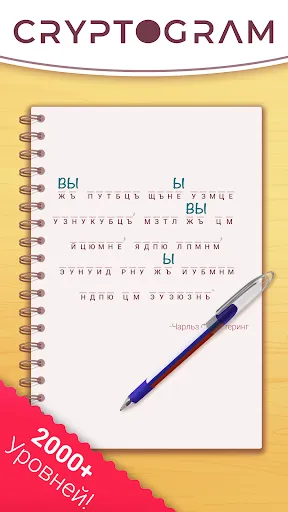 CRYPTOGRAM
ВЫ Ы
ЖЪ ПУТБЦЪ ЩЪНЕ УЗМЦЕ
ВЫ
УЗНУКУБЦЪ, МЗТЛ ЖЪ ЦМ
ЙЦЮМНЕ, ЯДПЮ ЛПМНМ,
Ы
ЗУНУИД РНУ ЖЪ ЙУБМНМ
НДПЮ ЦМ ЗУЭЮЗНЬ
-Чарльз теринг
2000+
Уровней!